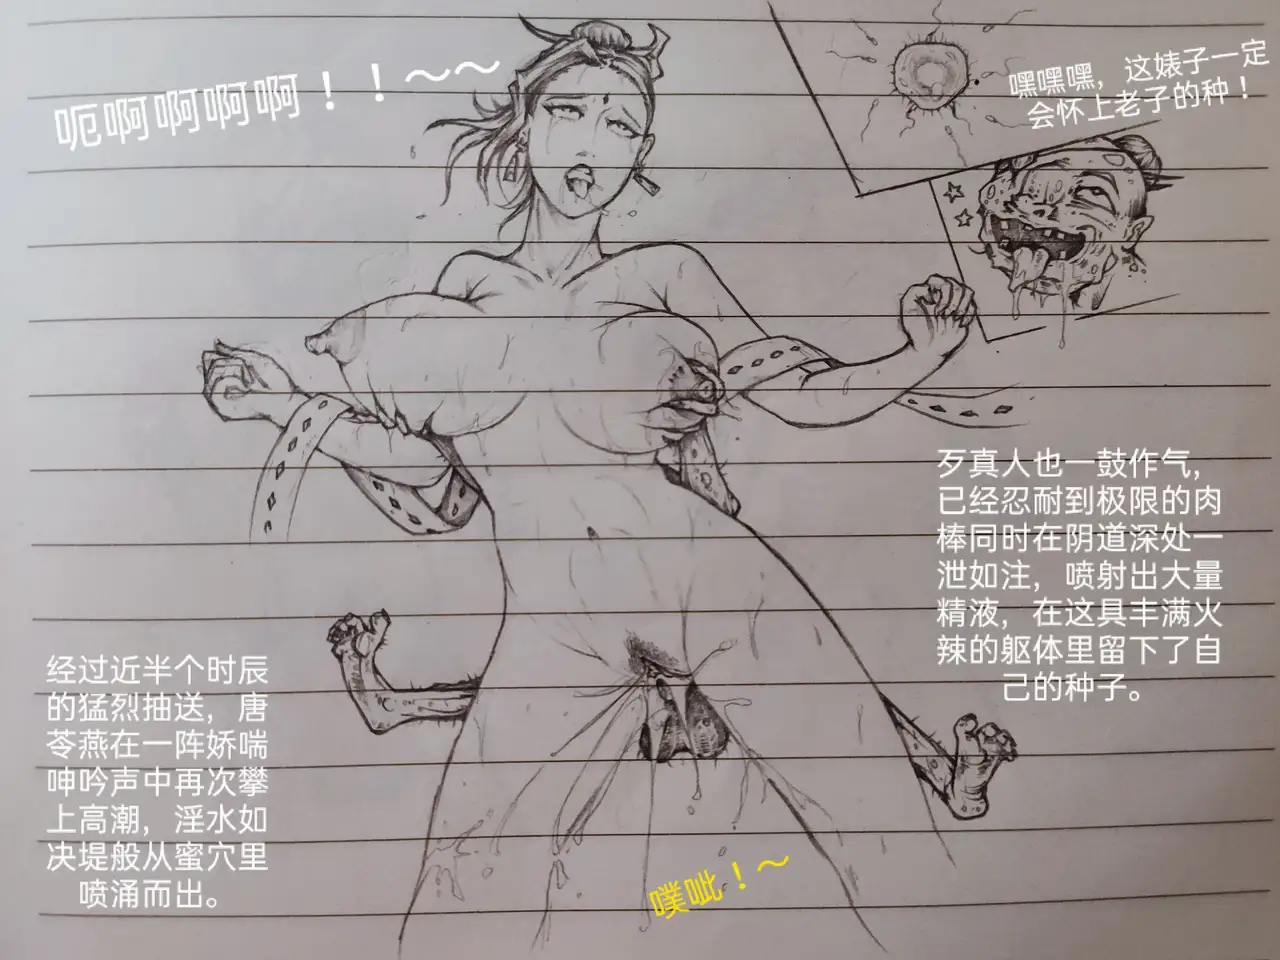 呃啊啊啊啊！！～～
嘿嘿嘿，这婊子一定
会怀上老子的种！
歹真人也一鼓作气，
已经忍耐到极限的肉
棒同时在阴道深处一
泄如注，喷射出大量
精液，在这具丰满火
辣的躯体里留下了自
己的种子。
经过近半个时辰
的猛烈抽送，唐
苓燕在一阵娇喘
呻吟声中再次攀
上高潮，淫水如
决堤般从蜜穴里
喷涌而出。
噗呲！～